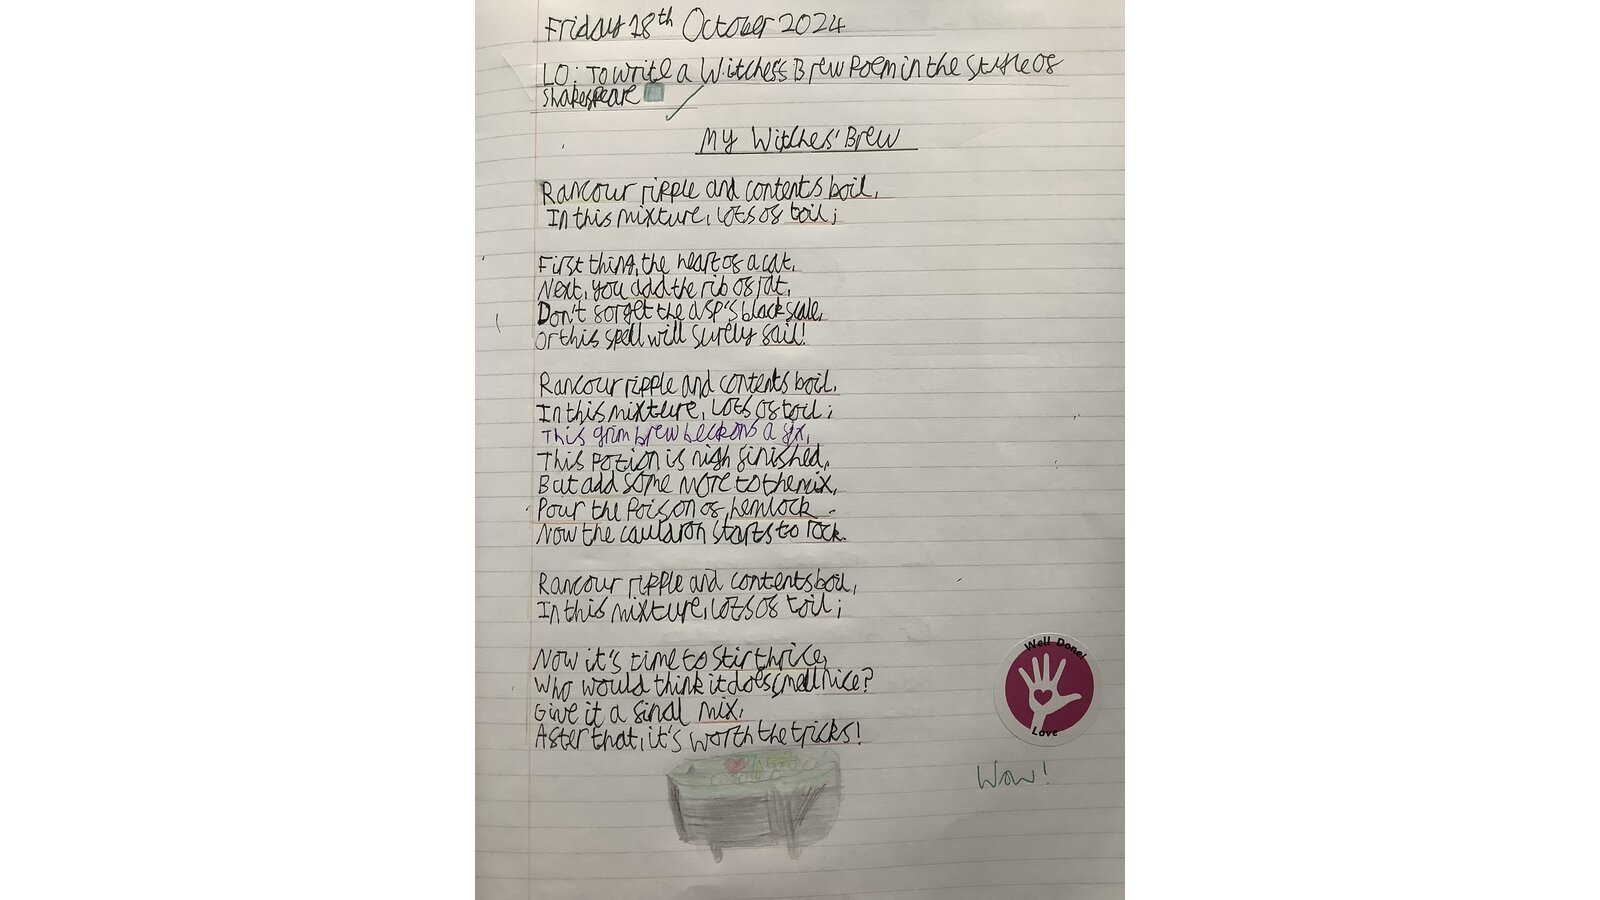 Friday 18th October 2024
LO: To write a Witches's Brew Poem in the style of
Shakespeare
My Witches' Brew
Rancour ripple and contents boil,
In this mixture, lots of toil;
First thing, the heart of a cat,
Next, you add the rib of rat,
Don't forget the asp's black scale,
Or this spell will surely fail!
Rancour ripple and contents boil,
In this mixture, lots of toil;
This grim brew beckons a fix,
This potion is nigh finished,
But add some more to the mix,
Pour the poison of hemlock -
Now the cauldron starts to rock.
Rancour ripple and contents boil,
In this mixture, lots of toil;
Now it's time to stir thrice,
Who would think it does smell nice?
Give it a final mix,
After that, it's worth the tricks!
Well Done!
Love
Wow!